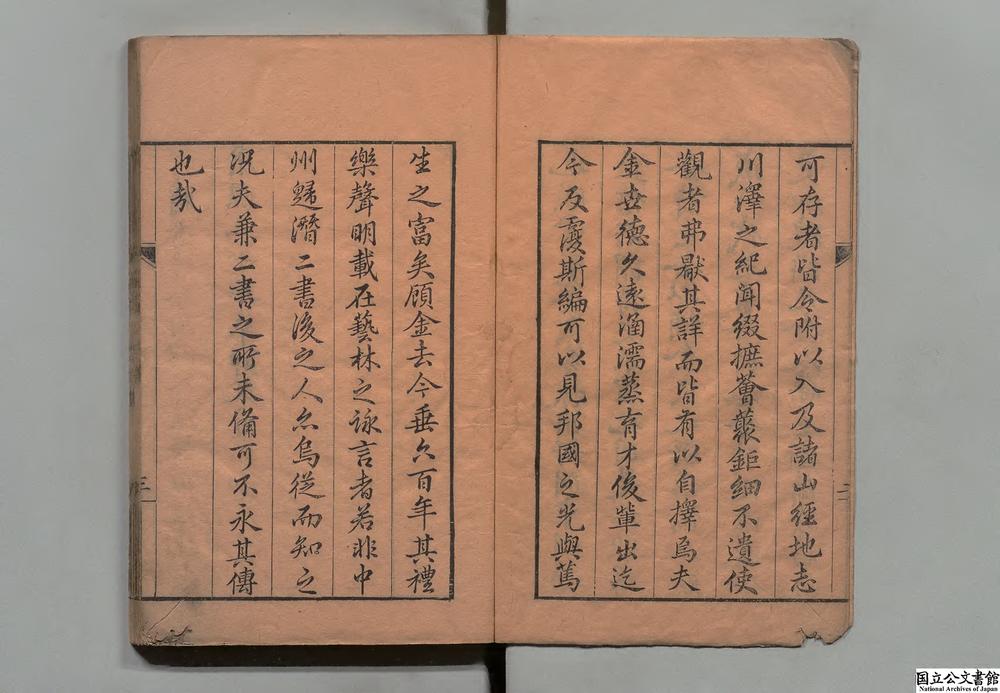 可存者皆令附以入及諸山經地志
川澤之紀聞綴摭薈蕞鉅細不遺使
觀者弗厭其詳而皆有以自擇焉夫
金世德久遠涵濡蒸育才俊輩出迄
今反覆斯編可以見邦國之光與篤
二
生之富矣顧金去今垂六百年其禮
樂聲明載在藝林之詠言者若非中
州歸潛二書後之人亦烏從而知之
況夫兼二書之所未備可不永其傳
也哉
三
国立公文書館
National Archives of Japan